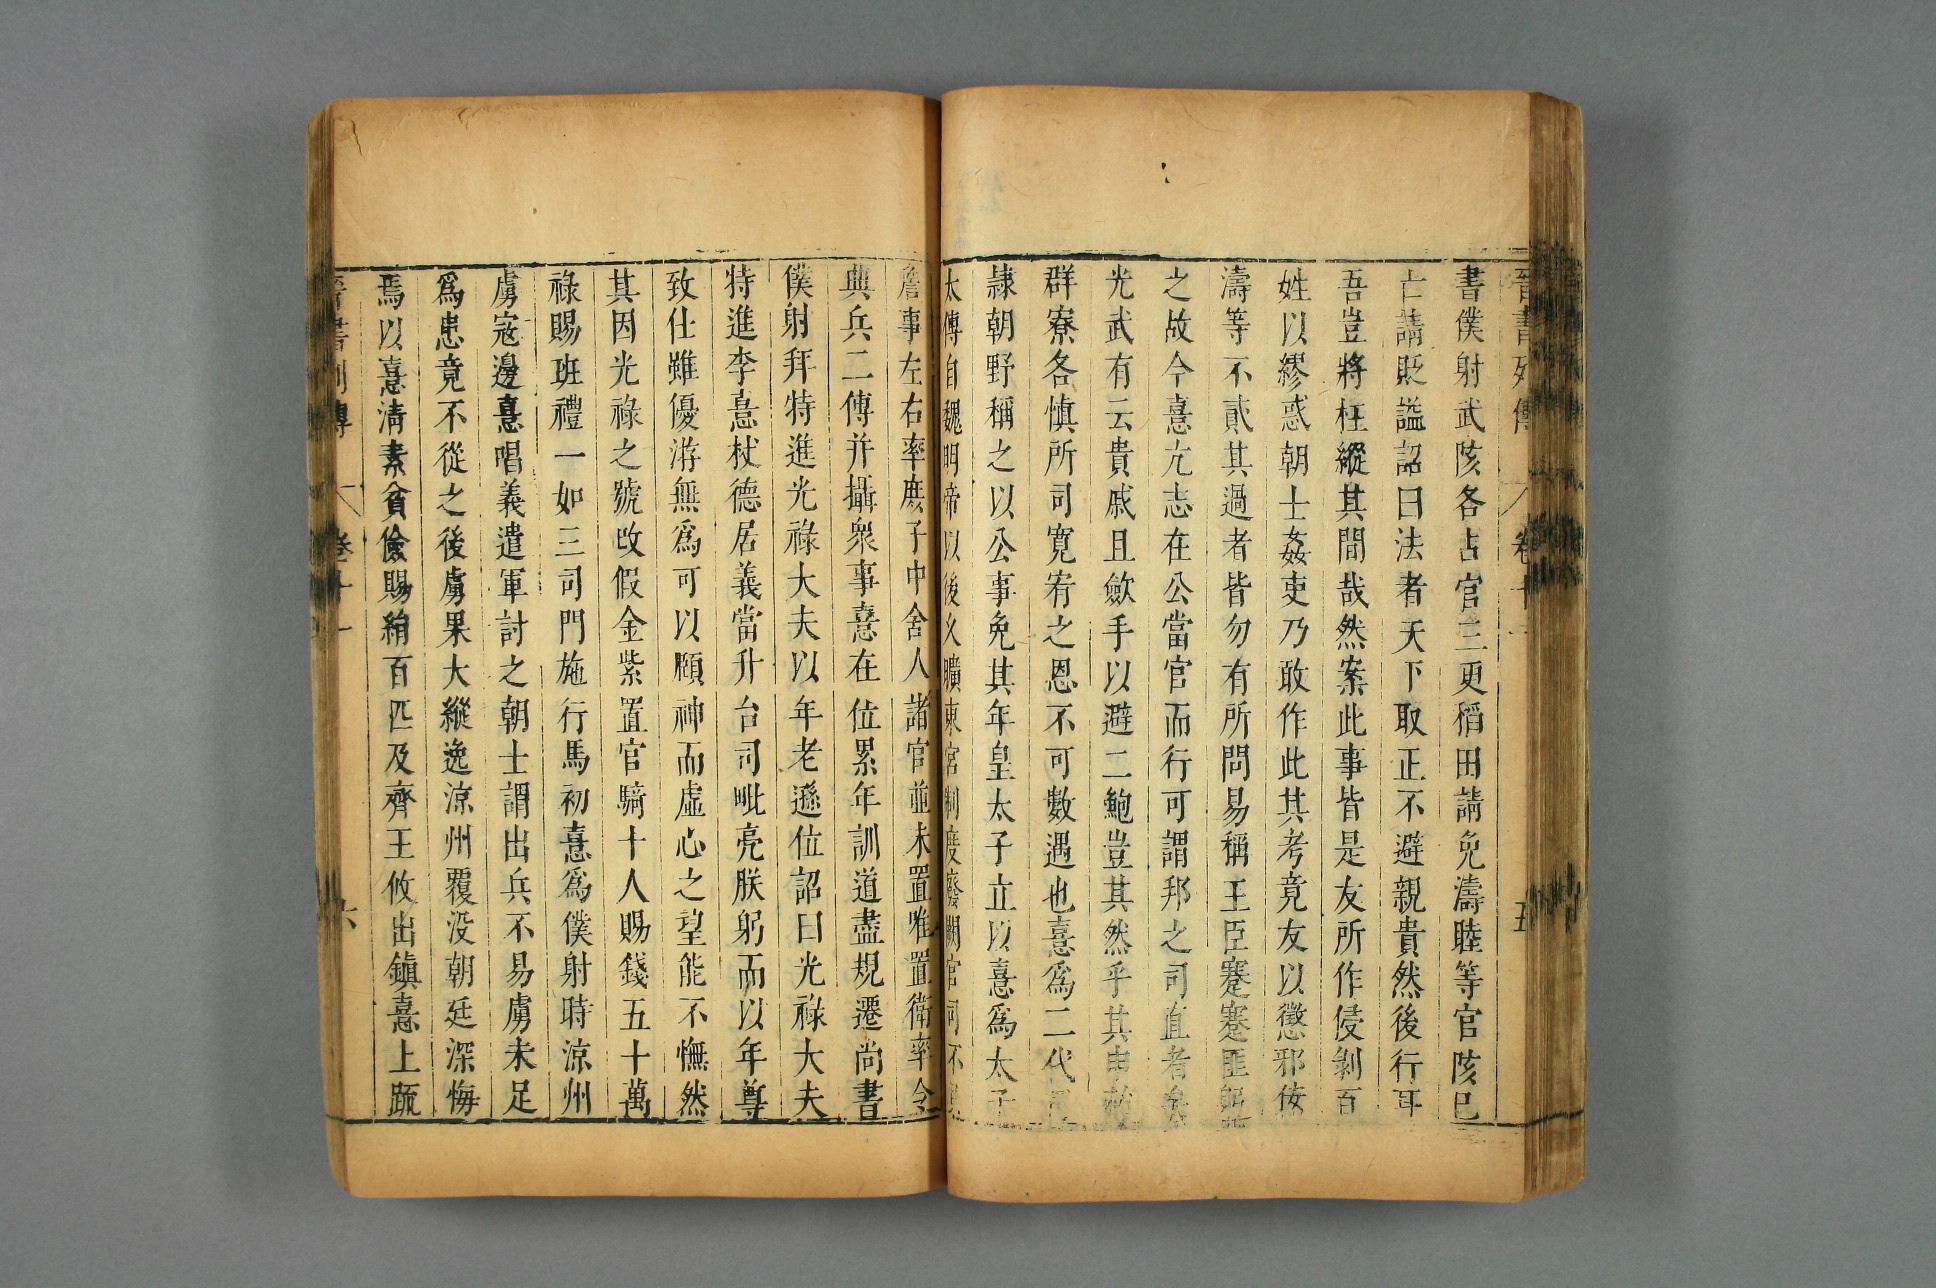 晉書列傳 卷十一 五
書僕射武陔各占官三更稻田請免濤睦等官陔已
亡請貶謚詔曰法者天下取正不避親貴然後行耳
吾豈將枉縱其間哉然案此事皆是友所作侵剝百
姓以繆惑朝士姦吏乃敢作此其考竟友以懲邪佞
濤等不貳其過者皆勿有所問易稱王臣蹇蹇匪躬
之故今憙亢志在公當官而行可謂邦之司直者矣
光武有云貴戚且歛手以避二鮑豈其然乎其申
群寮各慎所司寬宥之恩不可數遇也憙爲二代
隷朝野稱之以公事免其年皇太子立以憙爲太子
太傅自魏明帝以後久曠東宮制度廢闕官司不具
詹事左右率庶子中舍人諸官並未置唯置衛率令
典兵二傅并攝衆事憙在位累年訓道盡規遷尚書
僕射拜特進光祿大夫以年老遜位詔曰光祿大夫
特進李憙杖德居義當升台司毗亮朕躬而以年尊
致仕雖優游無爲可以頤神而虛心之望能不憮然
其因光祿之號改假金紫置官騎十人賜錢五十萬
祿賜班禮一如三司門施行馬初憙爲僕射時涼州
虜寇邊憙唱義遣軍討之朝士謂出兵不易虜未足
爲患竟不從之後虜果大縱逸涼州覆没朝廷深悔
焉以憙淸素貧儉賜絹百匹及齊王攸出鎮憙上疏
晉書列傳 卷十一 六